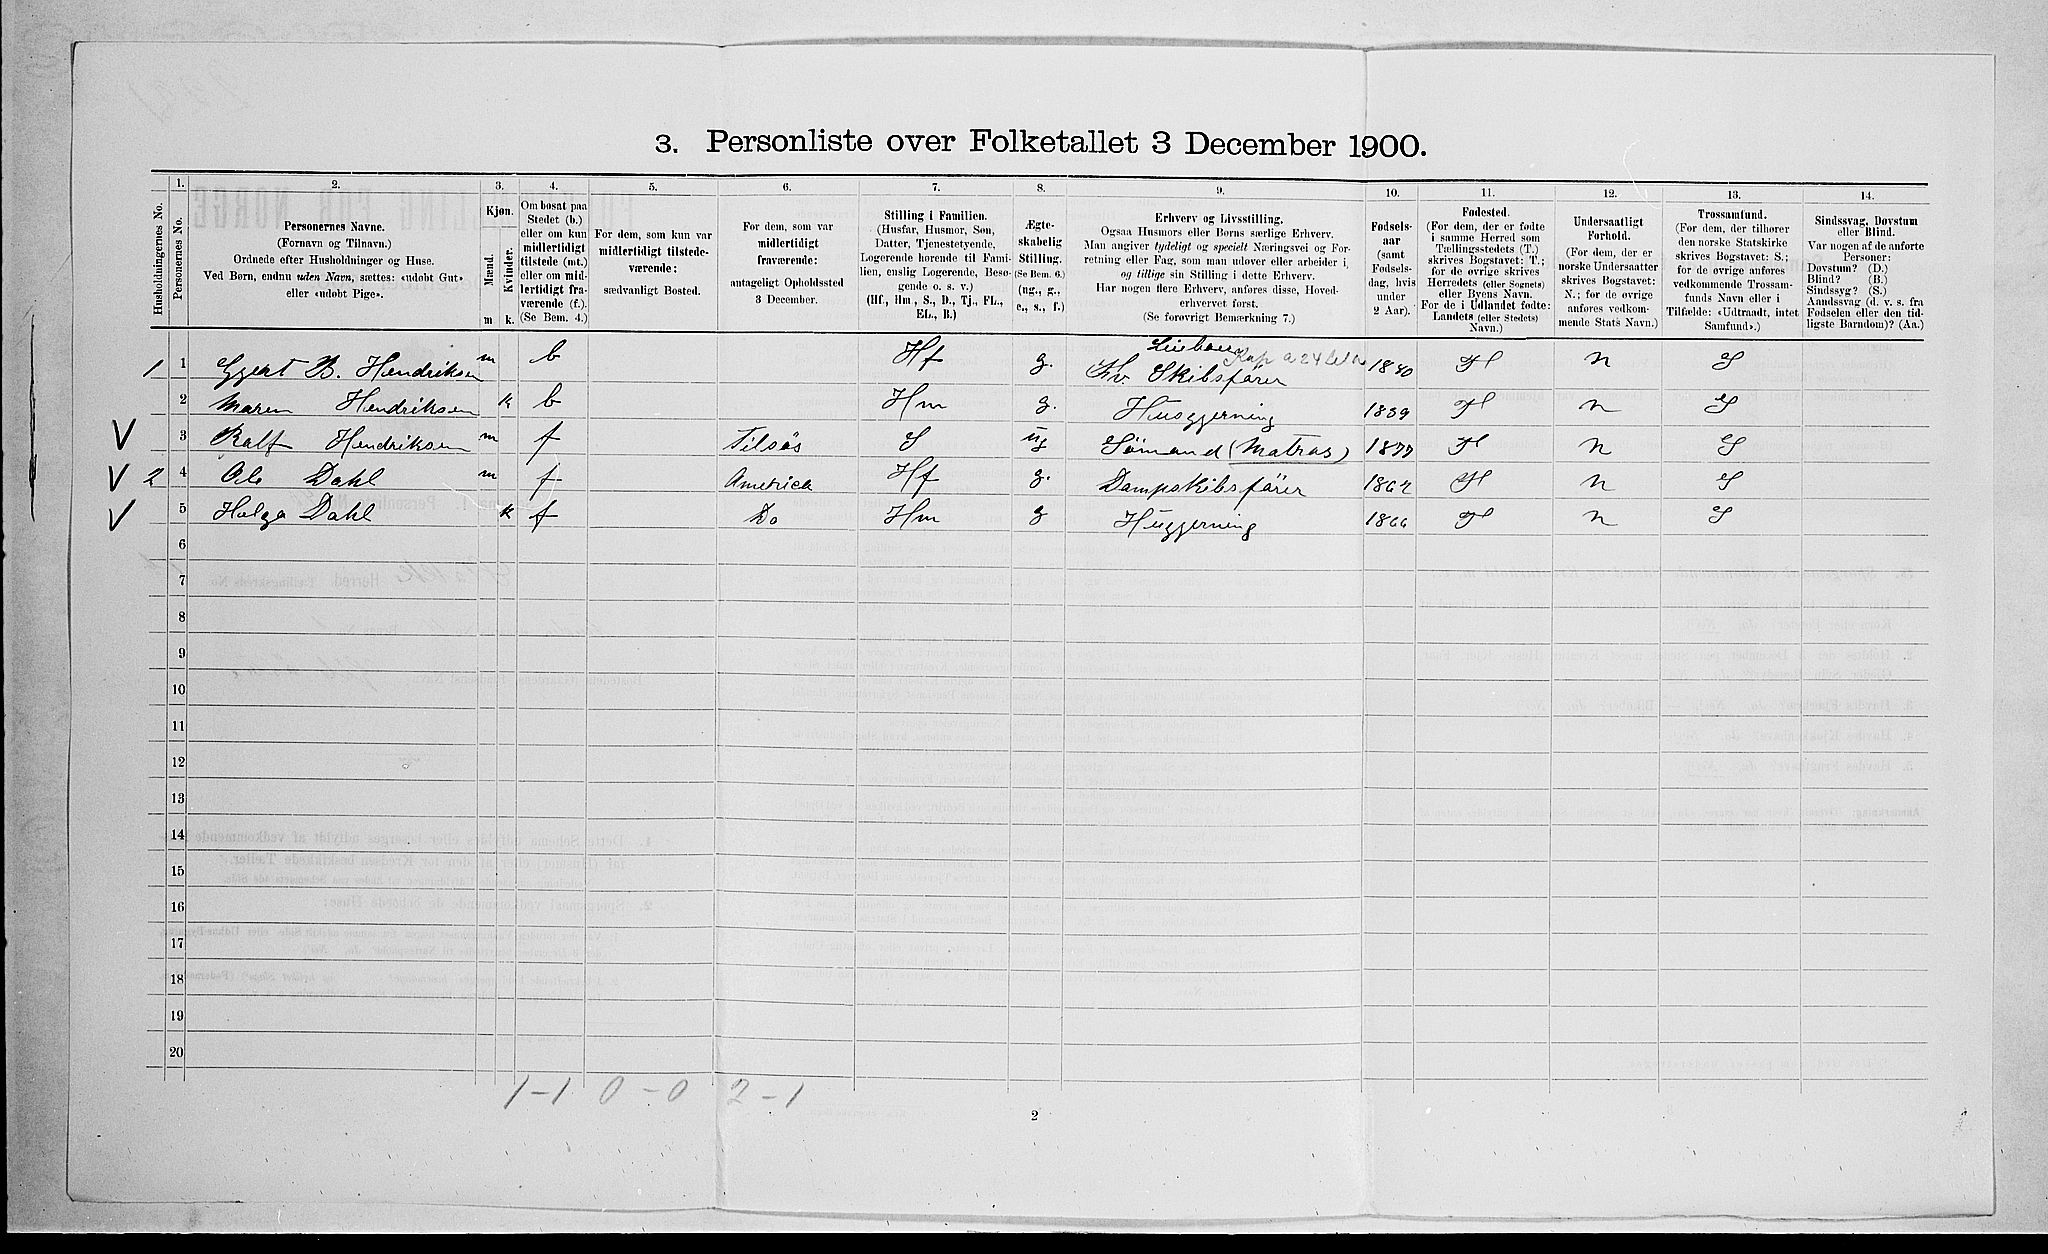 3. Personliste over Folketallet 3 December 1900.
Husholdningernes No.
1. Personernes No.
2. Personernes Navne.
(Fornavn og Tilnavn.)
Ordnede efter Husholdninger og Huse.
Ved Børn, endnu uden Navn, sættes: «udøbt Gut»
eller «udøbt Pige».
3. Kjøn.
Mænd. m
Kvinder. k.
4. Om bosat paa
Stedet (b.)
eller om kun
midlertidigt
tilstede (mt.)
eller om mid-
lertidigt fra-
værende (f.).
(Se Bem. 4.)
5. For dem, som kun var
midlertidigt tilstede-
værende:
sædvanligt Bosted.
6. For dem, som var
midlertidigt
fraværende:
antageligt Opholdssted
3 December.
7. Stilling i Familien.
(Husfar, Husmor, Søn,
Datter, Tjenestetyende,
Logerende hørende til Fami-
lien, enslig Logerende, Besø-
gende o. s. v.)
(Hf., Hm., S., D., Tj., FL.,
EL., B.)
8. Ægte-
skabelig
Stilling.
(Se Bem. 6.)
(ug., g.,
e., s., f.)
9. Erhverv og Livsstilling.
Ogsaa Husmors eller Børns særlige Erhverv.
Man angiver tydeligt og specielt Næringsvei og For-
retning eller Fag, som man udøver eller arbeider i,
og tillige sin Stilling i dette Erhverv.
Har nogen flere Erhverv, anføres disse, Hoved-
erhvervet først.
(Se forøvrigt Bemærkning 7.)
10. Fødsels-
aar
(samt
Fødsels-
dag, hvis
under
2 Aar).
11. Fødested.
(For dem, der er fødte
i samme Herred som
Tællingsstedets (T.)
skrives Bogstavet: T.;
for de øvrige skrives
Herredets (eller Sognets)
eller Byens Navn.
For de i Udlandet fødte:
Landets (eller Stedets)
Navn.)
12. Undersaatligt
Forhold.
(For dem, der er
norske Undersaatter
skrives Bogstavet:
N.; for de øvrige
anføres vedkom-
mende Stats Navn.)
13. Trossamfund.
(For dem, der tilhører
den norske Statskirke
skrives Bogstavet: S.;
for de øvrige anføres
vedkommende Trossam-
funds Navn eller i
Tilfælde: «Udtraadt, intet
Samfund».)
14. Sindssvag, Døvstum
eller Blind.
Var nogen af de anførte
Personer:
Døvstum? (D.)
Blind? (B.)
Sindssyg? (S.)
Aandssvag (d. v. s. fra
Fødselen eller den tid-
ligste Barndom)? (Aa.)
1 1 Egert B. Hendriksen m b Hf g. Fhv. Skibsfører 1840 T N S
2 Maren Hendriksen k b Hm g. Husgjerning 1839 T N S
V 3 Ralf Hendriksen m f Tilsøs S ug Sømand (Matros) 1877 T N S
V 2 4 Ole Dahl m f Amerika Hf g. Dampskibsfører 1862 T N S
V 5 Helga Dahl k f Do Hm g Husgjerning 1866 T N S
6
7
8
9
10
11
12
13
14
15
16
17
18
19
20
1-1 0-0 2-1
2